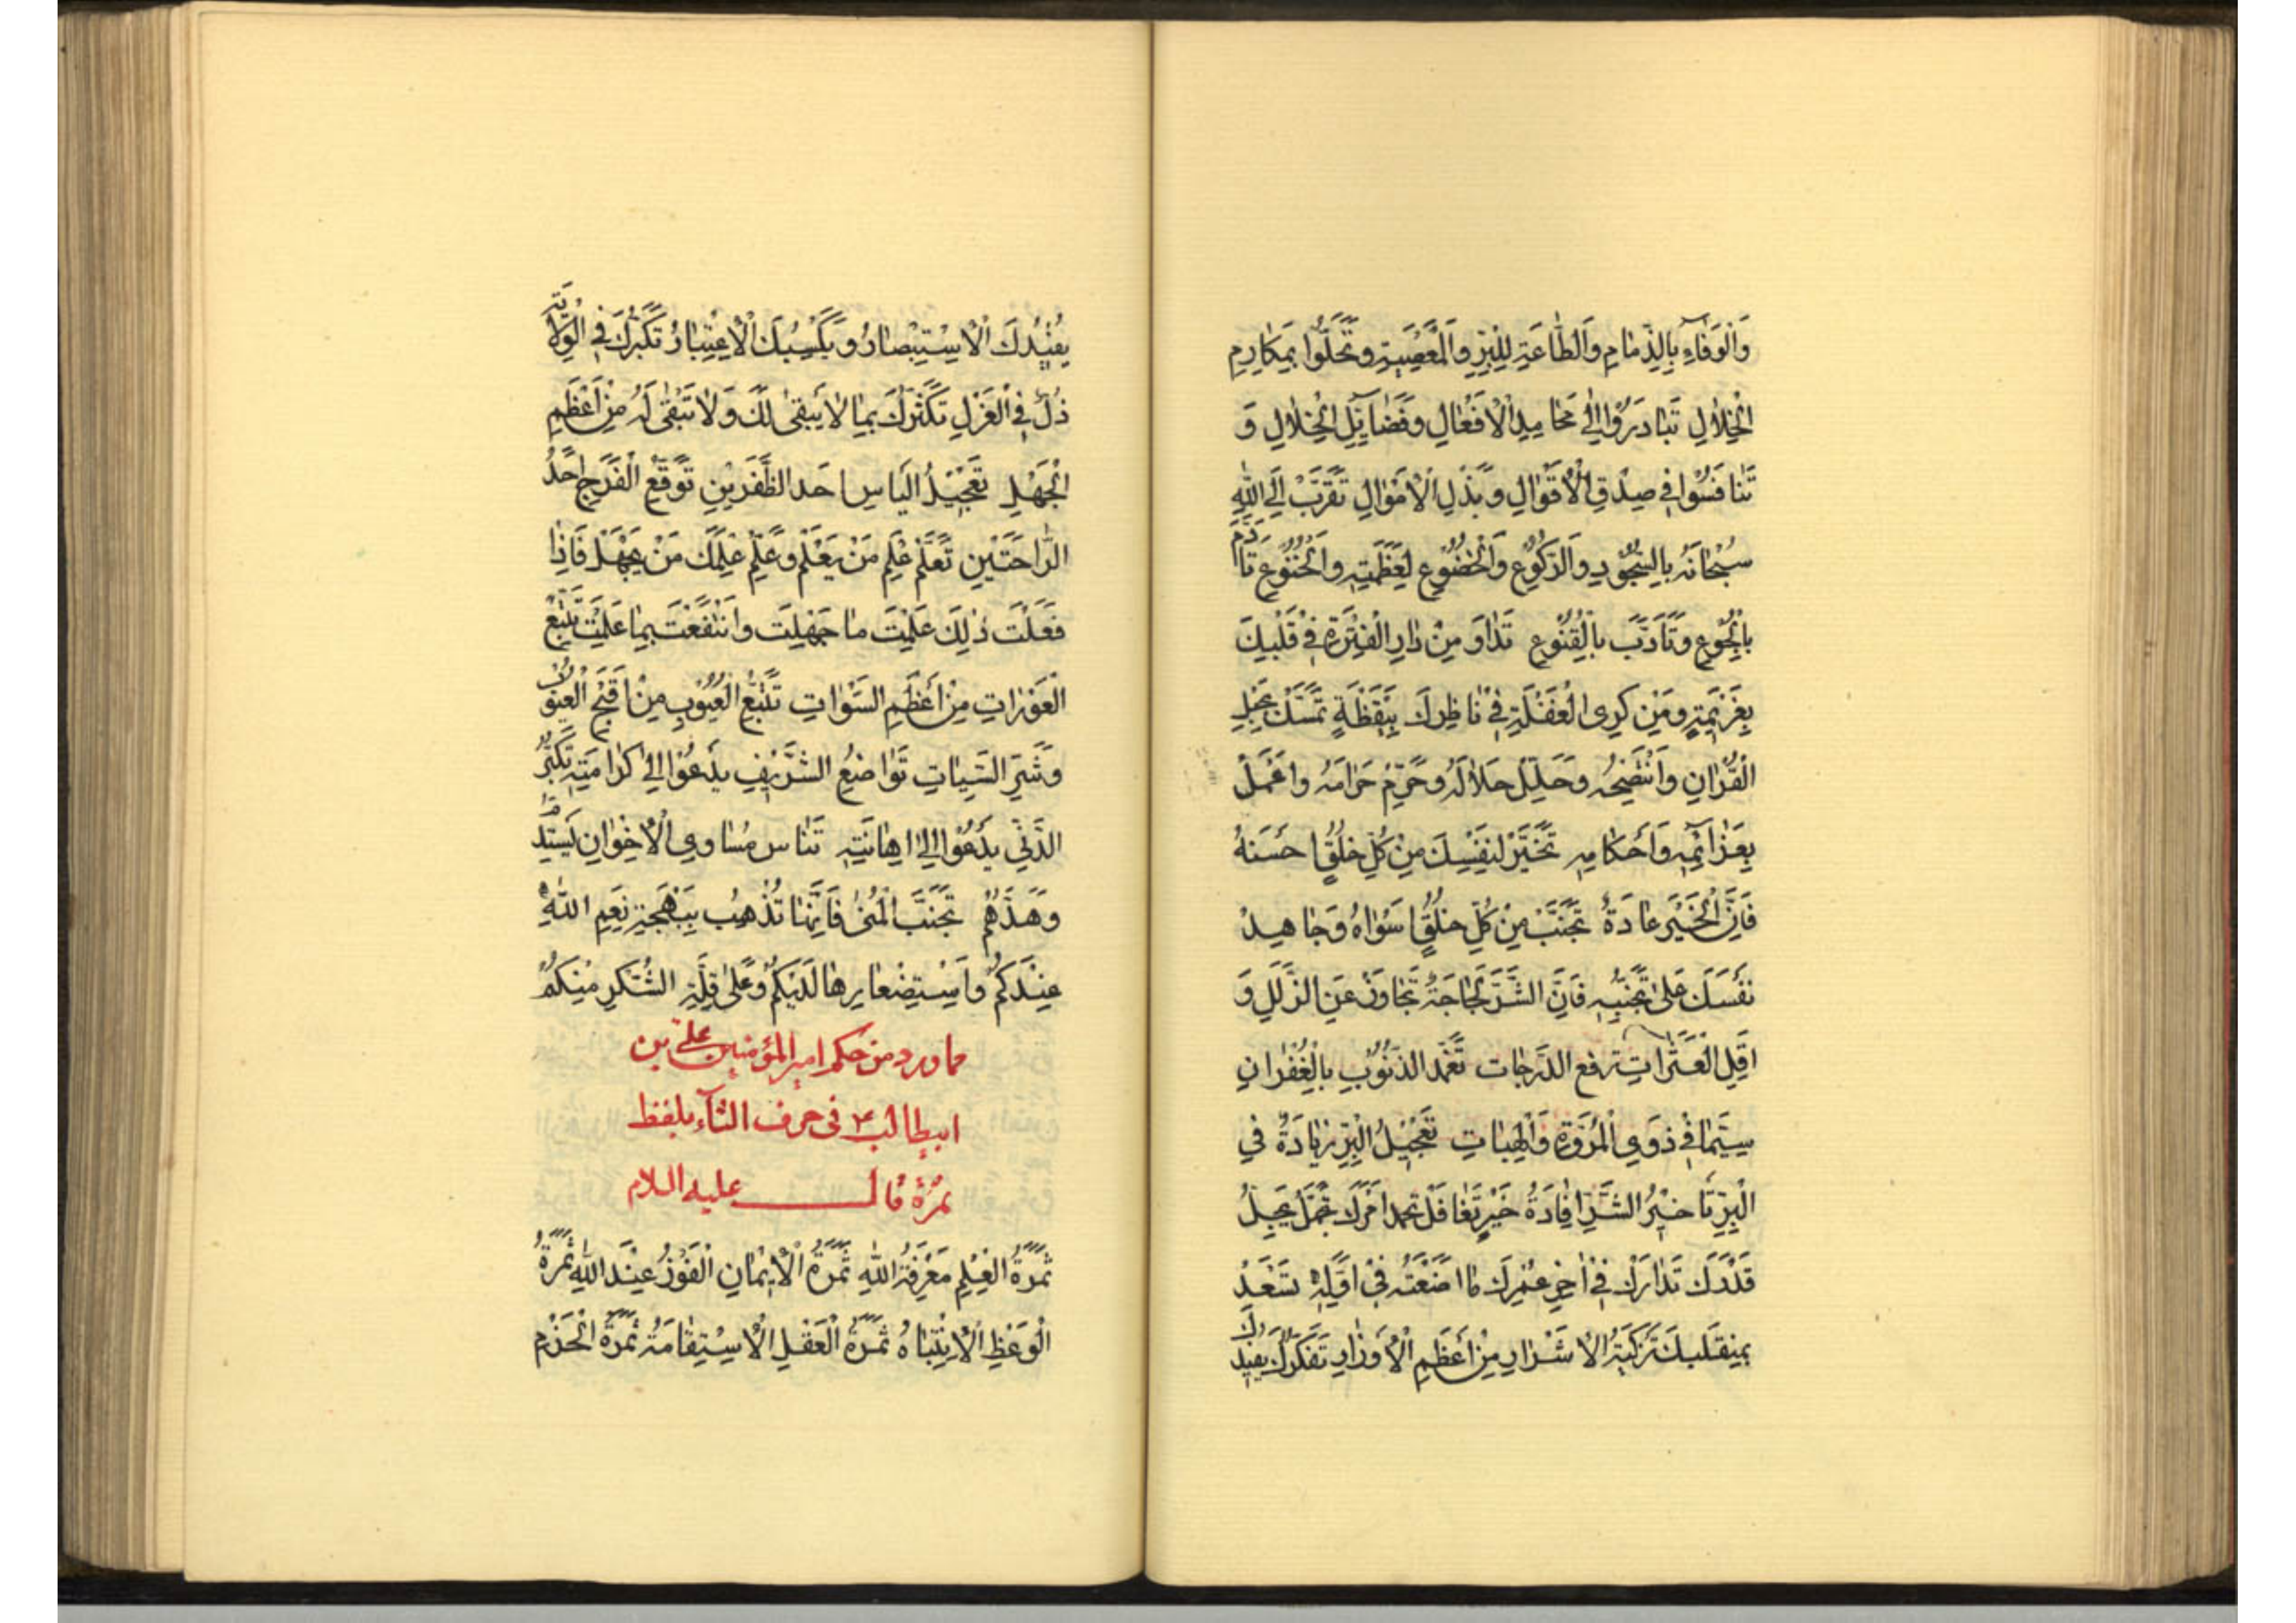 وَالْوَفَاءِ بِالذِّمَامِ وَالطَّاعَةِ لِلْبِرِّ وَالْمَعْصِيَةِ وَتَحَلَّوْا بِمَكَارِمِ
الْخِلَالِ تَبَادَرُوا إِلَى مَحَامِدِ الْأَفْعَالِ وَفَضَائِلِ الْخِلَالِ وَ
تَنَافَسُوا فِي صِدْقِ الْأَقْوَالِ وَبَذْلِ الْأَمْوَالِ تَقَرَّبْ إِلَى اللَّهِ
سُبْحَانَهُ بِالسُّجُودِ وَالرُّكُوعِ وَالْخُضُوعِ لِعَظَمَتِهِ وَالْخُنُوعِ تَأَدَّمْ
بِالْجُوعِ وَتَأَدَّبْ بِالْقُنُوعِ تَدَاوَ مِنْ دَاءِ الْفَتْرَةِ فِي قَلْبِكَ
بِعَزِيمَةٍ وَمِنْ كَرَى الْغَفْلَةِ فِي نَاظِرِكَ بِيَقْظَةٍ تَمَسَّكْ بِحَبْلِ
الْقُرْآنِ وَانْتَصِحْهُ وَحَلِّلْ حَلَالَهُ وَحَرِّمْ حَرَامَهُ وَاعْمَلْ
بِعَزَائِمِهِ وَأَحْكَامِهِ تَخَيَّرْ لِنَفْسِكَ مِنْ كُلِّ خُلُقٍ أَحْسَنَهُ
فَإِنَّ الْخَيْرَ عَادَةٌ تَجَنَّبْ مِنْ كُلِّ خُلُقٍ أَسْوَاهُ وَجَاهِدْ
نَفْسَكَ عَلَى تَجَنُّبِهِ فَإِنَّ الشَّرَّ لَجَاجَةٌ تَجَاوَزْ عَنِ الزَّلَلِ وَ
أَقِلِ الْعَثَرَاتِ تُرْفَعْ الدَّرَجَات تَغَمَّدِ الذُّنُوبَ بِالْغُفْرَانِ
سِيَّمَا فِي ذَوِي الْمُرُوَّةِ وَالْهِبَاتِ تَعْجِيلُ الْبِرِّ زِيَادَةٌ فِي
الْبِرِّ تَأْخِيرُ الشَّرِّ إِفَادَةُ خَيْرٍ تَغَافَلْ تحمد امْرَكَ تَجَمَّلْ يَجِلُّ
قَدْرُكَ تَدَارَكْ فِي آخِرِ عُمْرِكَ مَا أَضَعْتَهُ فِي أَوَّلِهِ تَسْعَدْ
بِمُنْقَلَبِكَ تَزْكِيَةُ الْأَشْرَارِ مِنْ أَعْظَمِ الْأَوْزَارِ تَفَكُّرُكَ يُفِيدُكَ
يُفِيدُكَ الْاسْتِبْصَارُ وَيَكْسِبُكَ الْاعْتِبَارُ تَكَبُّرُكَ فِي الْوِلَايَةِ
ذُلٌّ فِي الْعَزْلِ تَكَثُّرُكَ بِمَا لَا يَبْقَى لَكَ وَلَا تَبْقَى لَهُ مِنْ أَعْظَمِ
الْجَهْلِ تَعْجِيلُ الْيَاسِ احَد الظَّفَرَيْنِ تَوَقُّعُ الْفَرَجِ احَدُ
الرَّاحَتَيْنِ تَعَلَّمْ عِلْمَ مَنْ يَعْلَمُ وَعَلِّمْ عِلْمَكَ مَنْ يَجْهَلُ فَإِذَا
فَعَلْتَ ذَلِكَ عَلِمْتَ مَا جَهِلْتَ وَانْتَفَعْتَ بِمَا عَلِمْتَ تَتَبُّعُ
الْعَوْرَاتِ مِنْ أَعْظَمِ السَّوْاتِ تَتَبُّعُ الْعُيُوبِ مِنْ أَقْبَحِ الْعُيُوبِ
وَشَرِّ السَّيِّئَاتِ تَوَاضُعُ الشَّرِيفِ يَدْعُوا إِلَى كَرَامَتِهِ تَكَبُّرُ
الدَّنِيِّ يَدْعُوا إِلَى اهَانَتِهِ تَنَاسَ مَسَاوِي الْإِخْوَانِ تَسْتَدِمْ
وُدَّهُمْ تَجَنَّبِ الْمُنَى فَإِنَّهَا تُذْهِبُ بِبَهْجَةِ نِعَمِ اللَّهِ
عِنْدَكُمْ وَاسْتِصْغَارِهَا لَدَيْكُمْ وَعَلَى قِلَّةِ الشُّكْرِ مِنْكُمْ
مما ورد من حكم امير المؤمنين علي بن
ابيطالب ع فى حرف الثآء بلفظ
ثمرة قال عليه السلام
ثَمَرَةُ الْعِلْمِ مَعْرِفَةُ اللَّهِ ثَمَرَةُ الْإِيمَانِ الْفَوْزُ عِنْدَ اللَّهِ ثَمَرَةُ
الْوَعْظِ الْانْتِبَاهُ ثَمَرَةُ الْعَقْلِ الْاسْتِقَامَةُ ثَمَرَةُ الْحَزْمِ